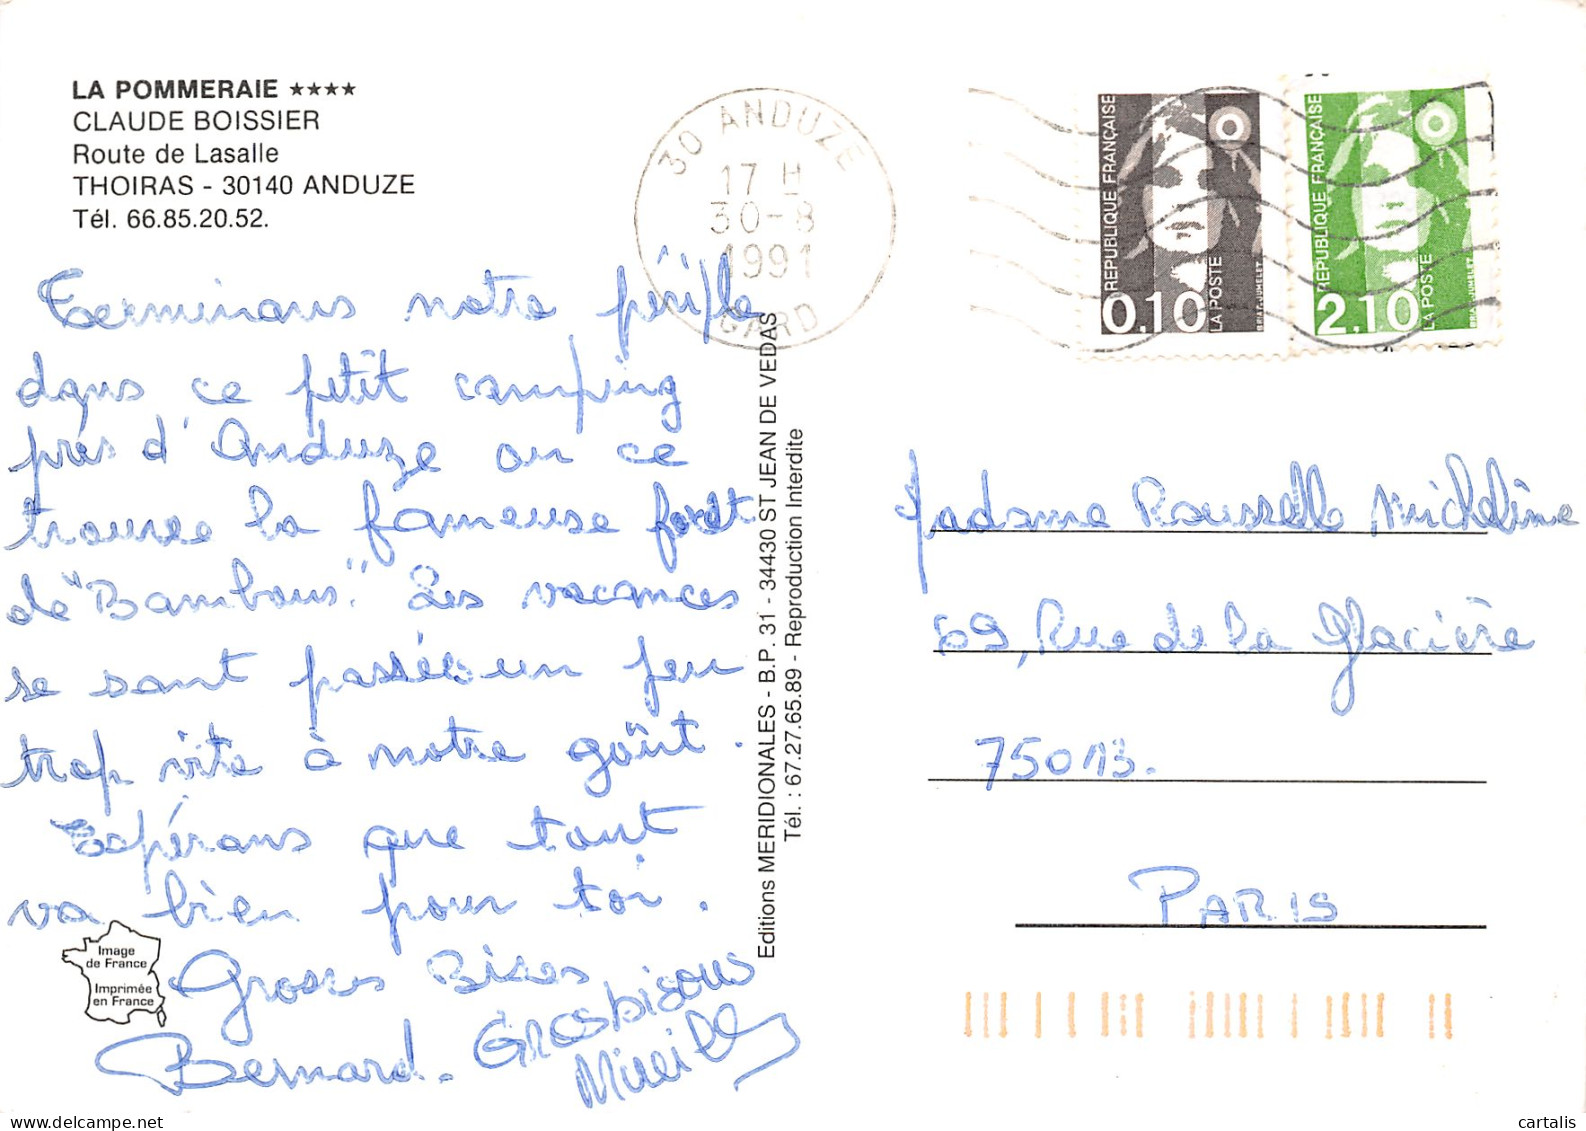 LA POMMERAIE ★★★★
CLAUDE BOISSIER
Route de Lasalle
THOIRAS - 30140 ANDUZE
Tél. 66.85.20.52.
30 ANDUZE
17 H
30-8
1991
GARD
REPUBLIQUE FRANÇAISE
0,10
LA POSTE
REPUBLIQUE FRANÇAISE
2,10
LA POSTE
Terminons notre périple
dans ce petit camping
près d'Anduze on ce
trouve la fameuse forêt
de "Bambous". Les vacances
se sont passées un peu
trop vite à notre goût.
Espérons que tout
va bien pour toi.
Grosses Bises
Bernard.
Gros bisous
Mireille
Image
de France
Imprimée
en France
Editions MERIDIONALES - B.P. 31 - 34430 ST JEAN DE VEDAS
Tél. : 67.27.65.89 - Reproduction Interdite
Madame Rousselle Micheline
69, Rue de la Glacière
75013.
PARIS
cartalis